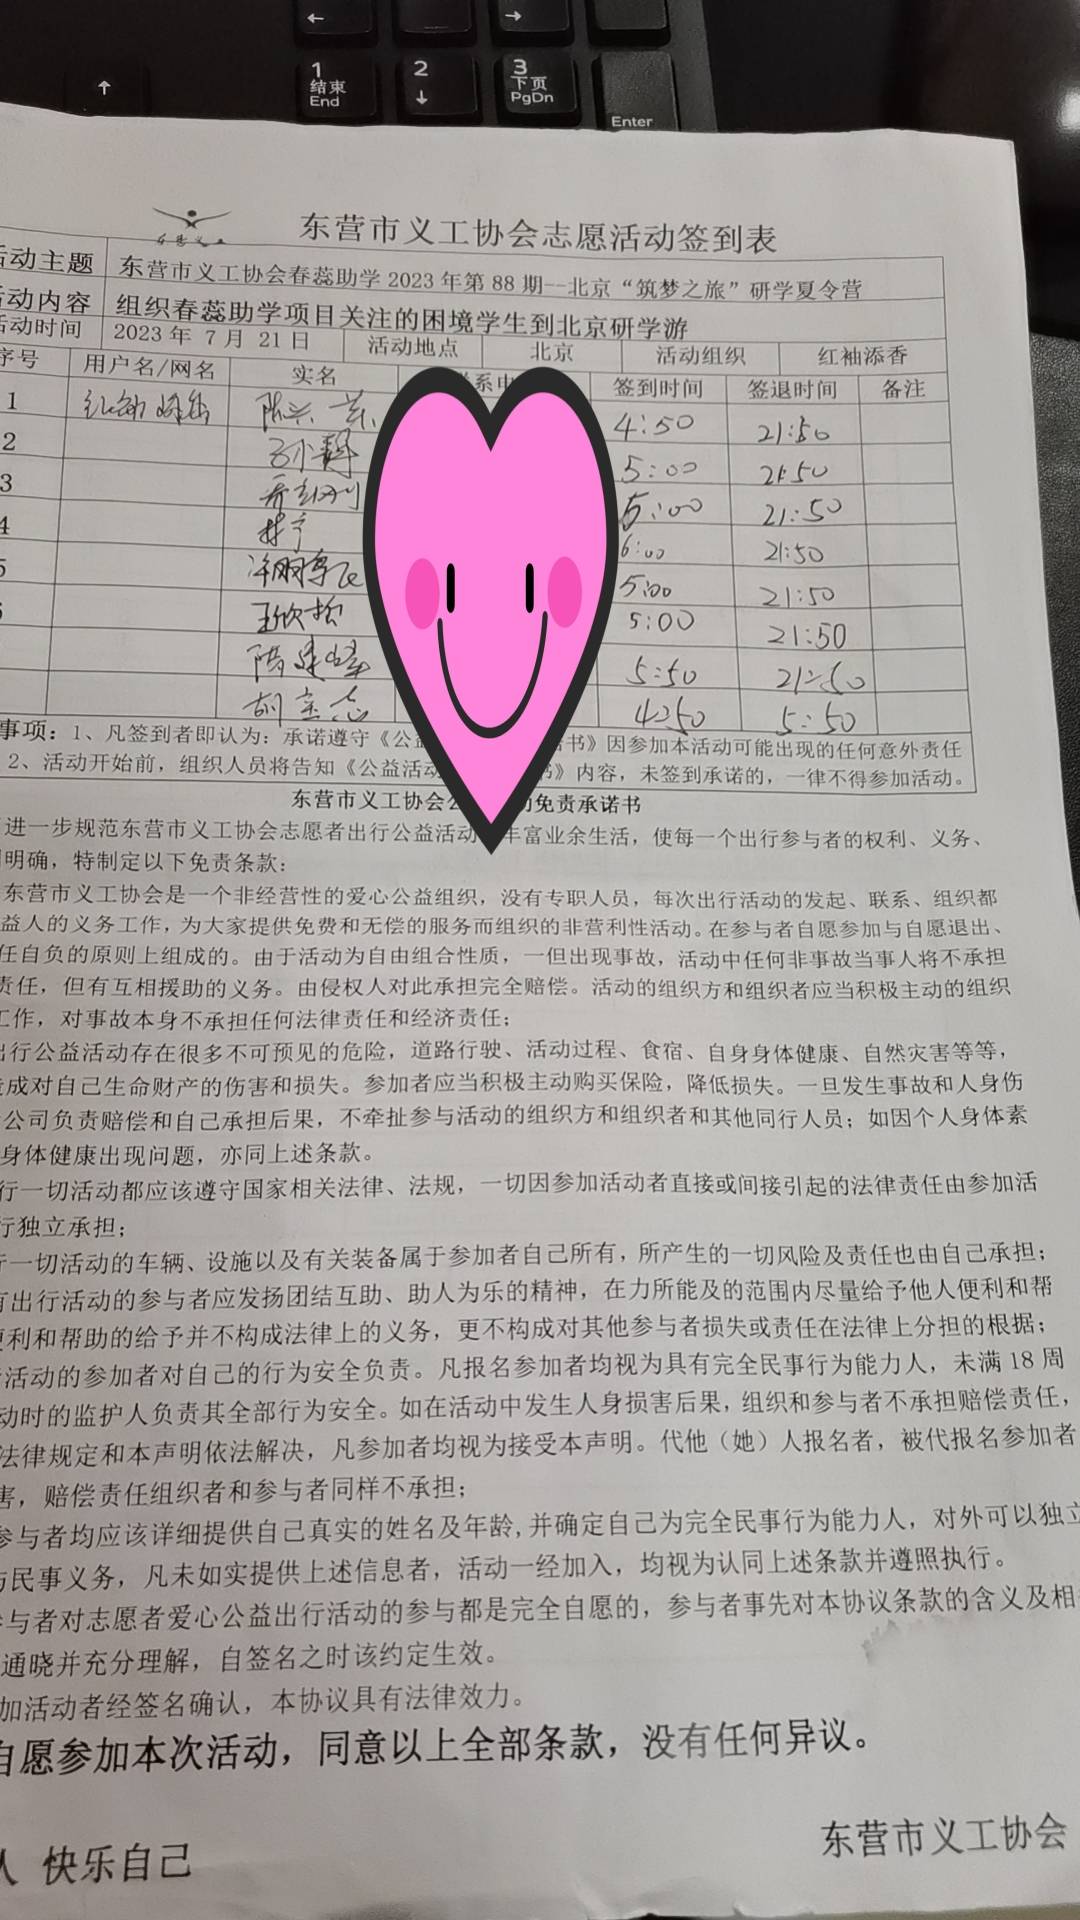 ←
→
↑
1
结束
End
2
↓
3
下页
PgDn
Enter
东营义工
东营市义工协会志愿活动签到表
活动主题 东营市义工协会春蕊助学2023年第88期--北京“筑梦之旅”研学夏令营
活动内容 组织春蕊助学项目关注的困境学生到北京研学游
活动时间 2023年 7月 21日 活动地点 北京 活动组织 红袖添香
序号 用户名/网名 实名 签到时间 签退时间 备注
1 4:50 21:50
2 孙静 5:00 21:50
3 5:00 21:50
4 林宁 6:00 21:50
5 5:00 21:50
王欣 5:00 21:50
隋建峰 5:50 21:50
胡宝志 4:50 5:50
事项：1、凡签到者即认为：承诺遵守《公益 书》因参加本活动可能出现的任何意外责任
2、活动开始前，组织人员将告知《公益活动 书》内容，未签到承诺的，一律不得参加活动。
东营市义工协会公 免责承诺书
进一步规范东营市义工协会志愿者出行公益活动 丰富业余生活，使每一个出行参与者的权利、义务、
明确，特制定以下免责条款：
东营市义工协会是一个非经营性的爱心公益组织，没有专职人员，每次出行活动的发起、联系、组织都
益人的义务工作，为大家提供免费和无偿的服务而组织的非营利性活动。在参与者自愿参加与自愿退出、
任自负的原则上组成的。由于活动为自由组合性质，一但出现事故，活动中任何非事故当事人将不承担
责任，但有互相援助的义务。由侵权人对此承担完全赔偿。活动的组织方和组织者应当积极主动的组织
工作，对事故本身不承担任何法律责任和经济责任；
出行公益活动存在很多不可预见的危险，道路行驶、活动过程、食宿、自身身体健康、自然灾害等等，
造成对自己生命财产的伤害和损失。参加者应当积极主动购买保险，降低损失。一旦发生事故和人身伤
公司负责赔偿和自己承担后果，不牵扯参与活动的组织方和组织者和其他同行人员；如因个人身体素
身体健康出现问题，亦同上述条款。
行一切活动都应该遵守国家相关法律、法规，一切因参加活动者直接或间接引起的法律责任由参加活
行独立承担；
行一切活动的车辆、设施以及有关装备属于参加者自己所有，所产生的一切风险及责任也由自己承担；
有出行活动的参与者应发扬团结互助、助人为乐的精神，在力所能及的范围内尽量给予他人便利和帮
便利和帮助的给予并不构成法律上的义务，更不构成对其他参与者损失或责任在法律上分担的根据；
活动的参加者对自己的行为安全负责。凡报名参加者均视为具有完全民事行为能力人，未满18周
动时的监护人负责其全部行为安全。如在活动中发生人身损害后果，组织和参与者不承担赔偿责任，
法律规定和本声明依法解决，凡参加者均视为接受本声明。代他（她）人报名者，被代报名参加者
害，赔偿责任组织者和参与者同样不承担；
参与者均应该详细提供自己真实的姓名及年龄,并确定自己为完全民事行为能力人，对外可以独立
与民事义务，凡未如实提供上述信息者，活动一经加入，均视为认同上述条款并遵照执行。
参与者对志愿者爱心公益出行活动的参与都是完全自愿的，参与者事先对本协议条款的含义及相
通晓并充分理解，自签名之时该约定生效。
加活动者经签名确认，本协议具有法律效力。
自愿参加本次活动，同意以上全部条款，没有任何异议。
人 快乐自己
东营市义工协会